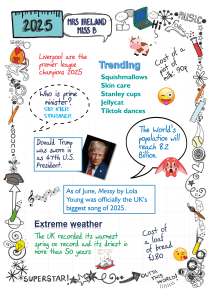 2025
MRS IRELAND
MISS B
MUSIC
Liverpool are the
premier league
champions 2025
Trending
Squishmallows
Skin care
Stanley cups
Jellycat
Tiktok dances
Cost of a
pint of
milk 90p
Who is prime
minister?
SIR KEIR
STARMER
Donald Trump
was sworn in
as 47th U.S.
President.
The World's
population will
reach 8.2
Billion.
As of June, Messy by Lola
Young was officially the UK's
biggest song of 2025.
Extreme weather
The UK recorded its warmest
spring on record and its driest in
more than 50 years
Cost of
a loaf
of bread
£1.80
SUPERSTAR!